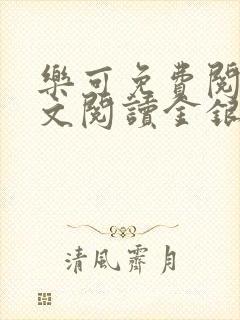 樂可免費閱
文閱讀金銀
清風霽月